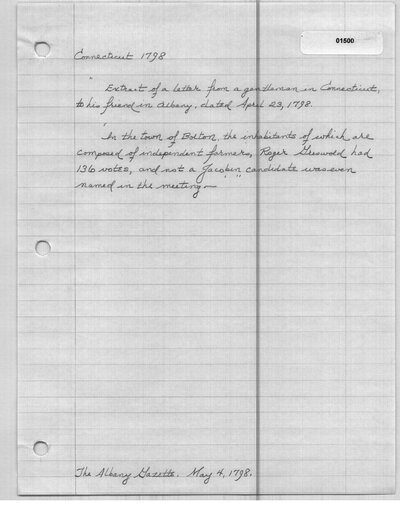 01500
Connecticut 1798
" Extract of a letter from a gentleman in Connecticut,
to his friend in Albany, dated April 23, 1798.
"In the town of Bolton, the inhabitants of which are
composed of independent farmers, Roger Griswold had
136 votes, and not a "Jacobin" candidate was even
named in the meeting—
The Albany Gazette. May 4, 1798.